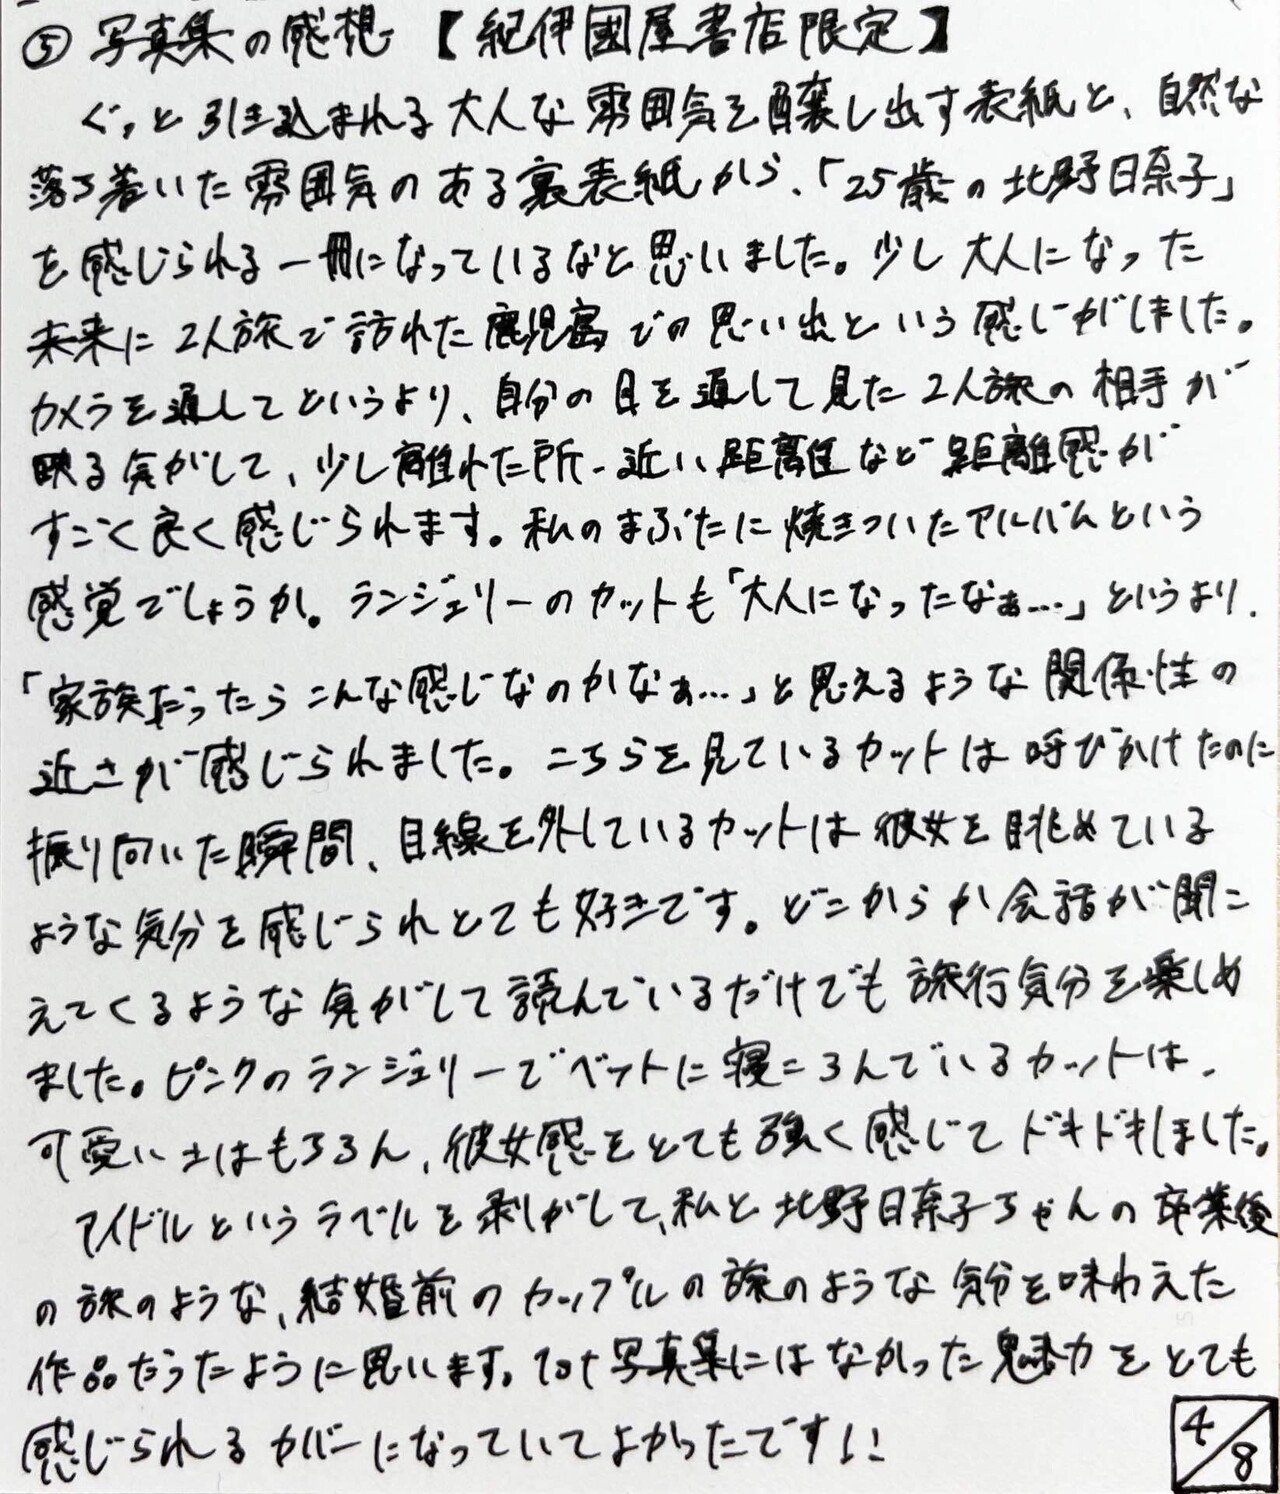 ⑤ 写真集の感想 【紀伊國屋書店限定】
ぐっと引き込まれる大人な雰囲気を醸し出す表紙と、自然な
落ち着いた雰囲気のある裏表紙から、「25歳の北野日奈子」
を感じられる一冊になっているなと思いました。少し大人になった
未来に2人旅で訪れた鹿児島での思い出という感じがしました。
カメラを通してというより、自分の目を通して見た2人旅の相手が
映る気がして、少し離れた所-近い距離など距離感が
すごく良く感じられます。私のまぶたに焼きついたアルバムという
感覚でしょうか。ランジェリーのカットも「大人になったなぁ…」というより、
「家族だったらこんな感じなのかなぁ…」と思えるような関係性の
近さが感じられました。こちらを見ているカットは呼びかけたのに
振り向いた瞬間、目線を外しているカットは彼女を眺めている
ような気分を感じられとても好きです。どこからか会話が聞こ
えてくるような気がして読んでいるだけでも旅行気分を楽しめ
ました。ピンクのランジェリーでベットに寝ころんでいるカットは、
可愛いさはもちろん、彼女感をとても強く感じてドキドキしました。
アイドルというラベルを剥がして、私と北野日奈子ちゃんの卒業後
の旅のような、結婚前のカップルの旅のような気分を味わえた
作品だったように思います。1st写真集にはなかった魅力をとても
感じられるカバーになっていてよかったです!!
4/8